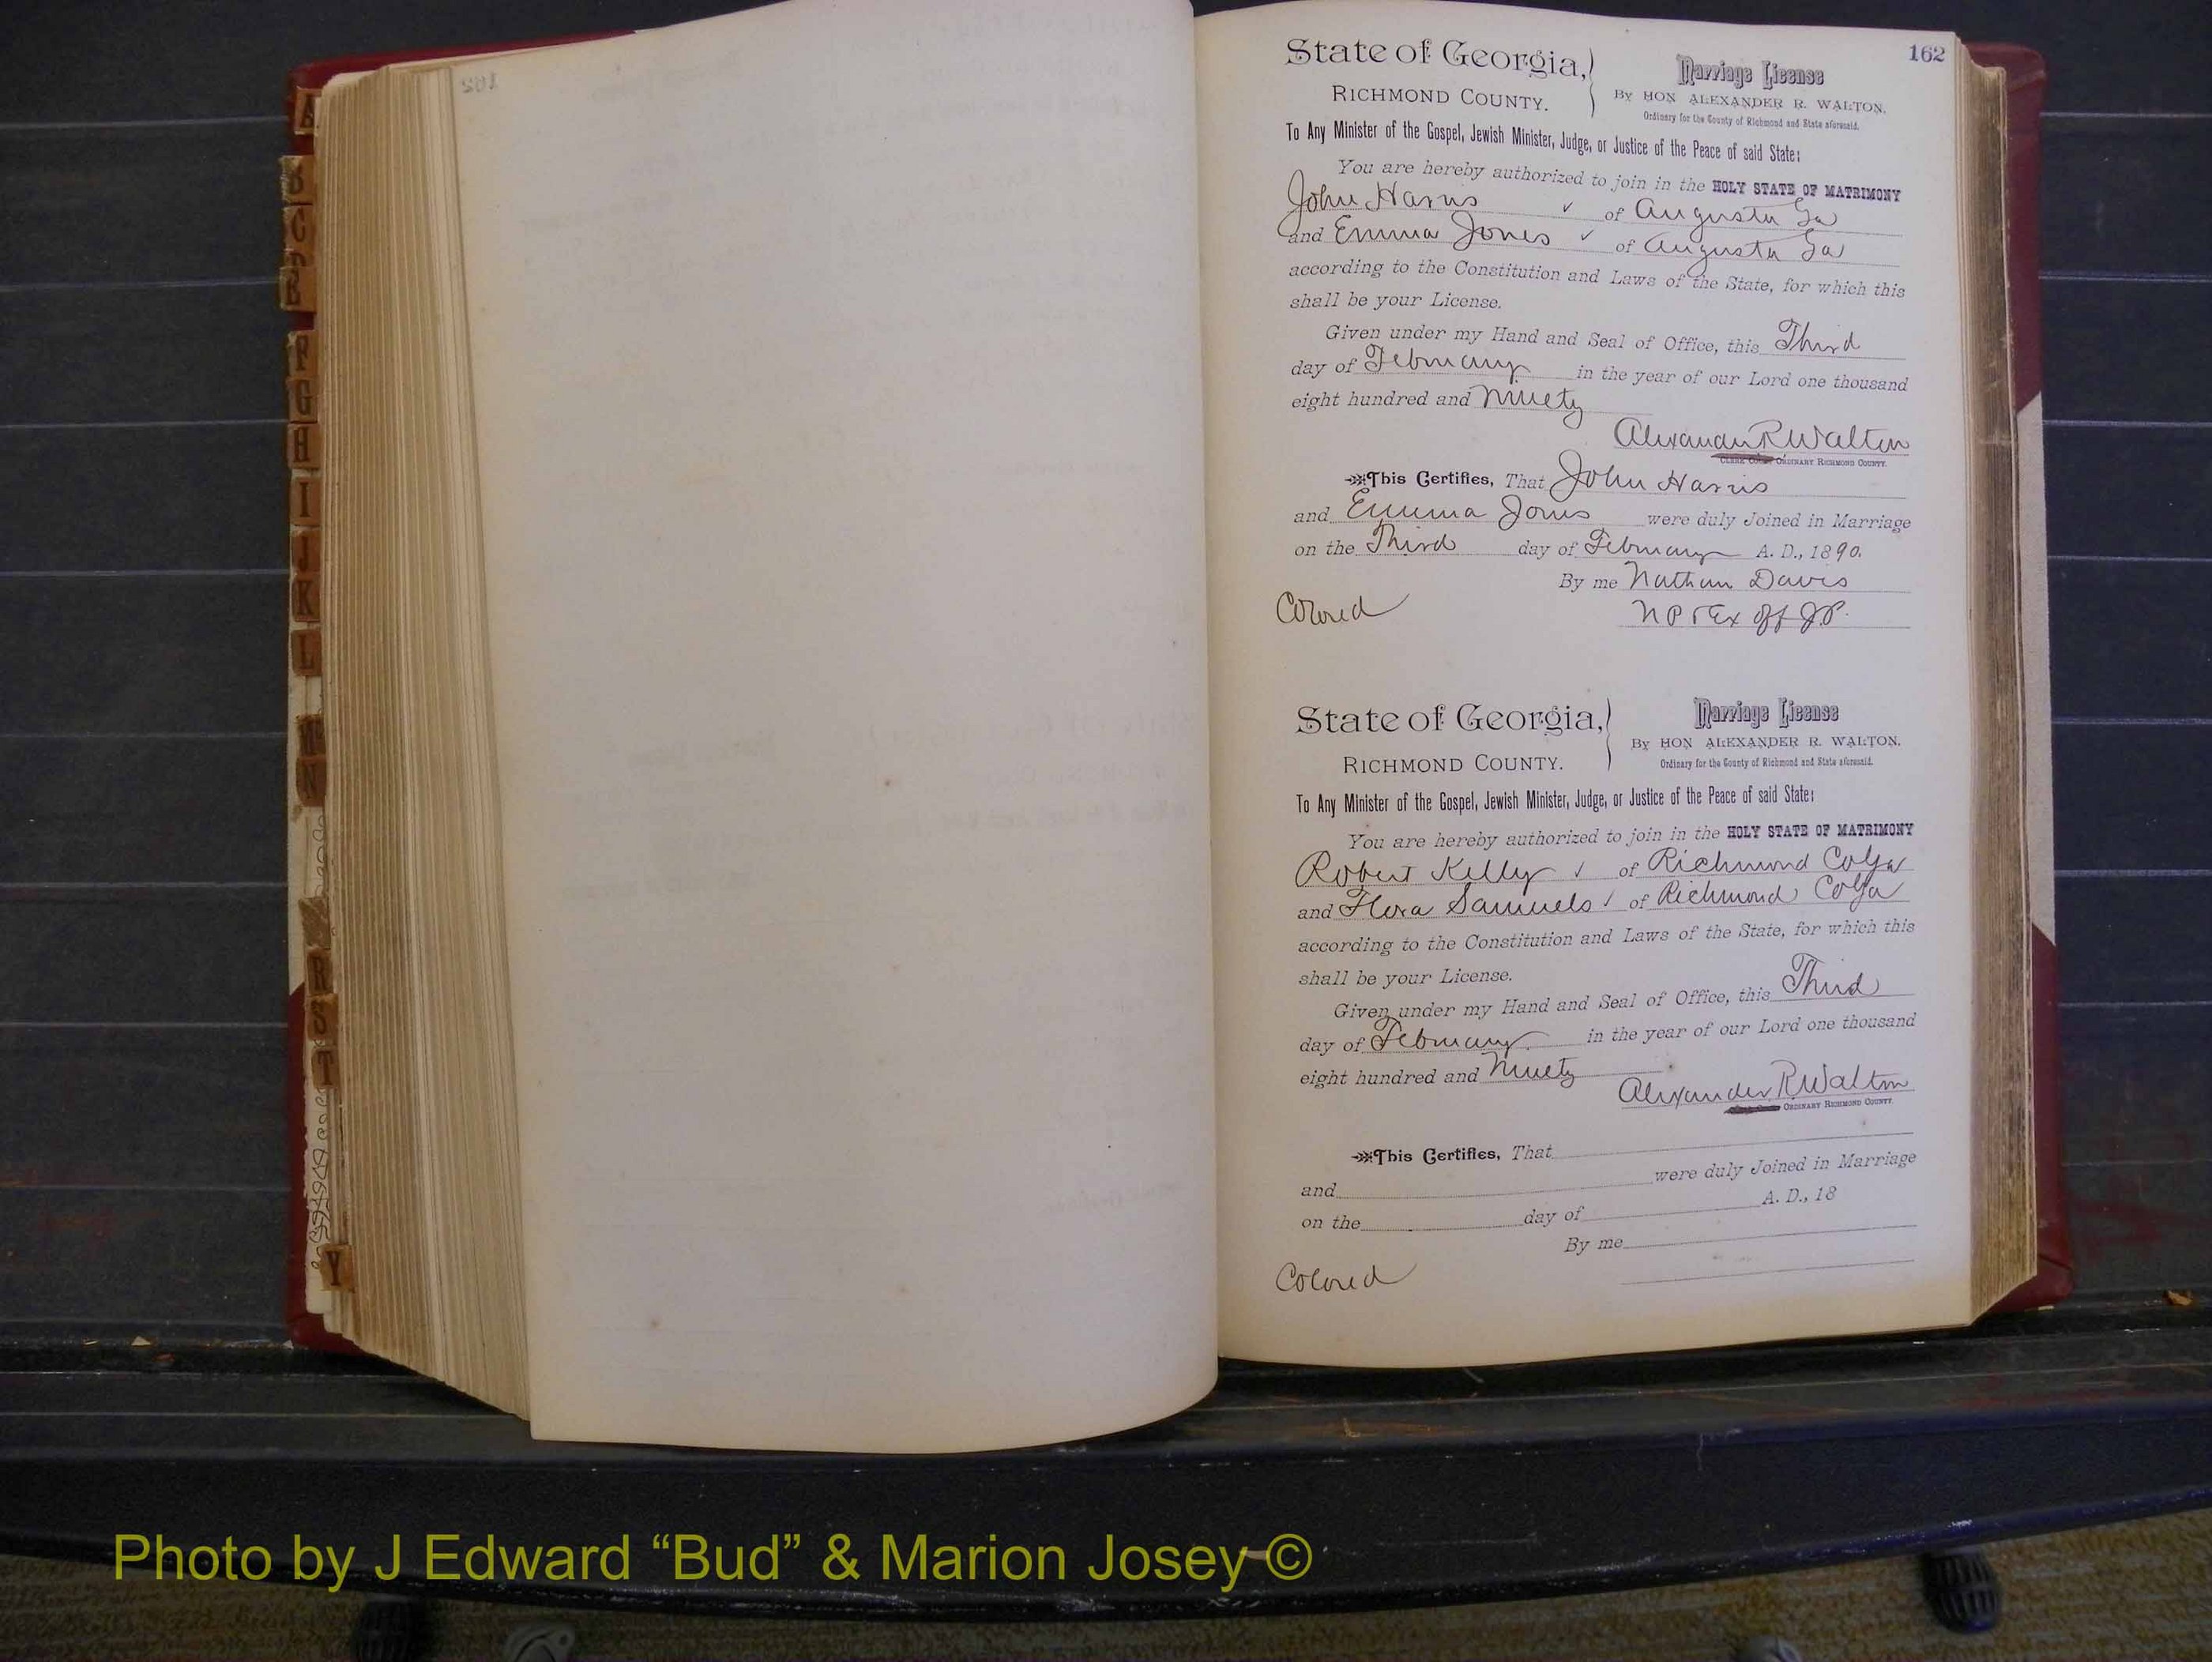 162
State of Georgia,
RICHMOND COUNTY.
Marriage License
By HON ALEXANDER R. WALTON,
Ordinary for the County of Richmond and State aforesaid.
To Any Minister of the Gospel, Jewish Minister, Judge, or Justice of the Peace of said State:
You are hereby authorized to join in the HOLY STATE OF MATRIMONY
John Harris ✓ of Augusta Ga
and Emma Jones ✓ of Augusta Ga
according to the Constitution and Laws of the State, for which this
shall be your License.
Given under my Hand and Seal of Office, this Third
day of February in the year of our Lord one thousand
eight hundred and Ninety
Alexander R Walton
ORDINARY RICHMOND COUNTY.
This Certifies, That John Harris
and Emma Jones were duly Joined in Marriage
on the Third day of February A. D., 1890.
By me Nathan Davis
Colored
N P & Ex Off J.P.
State of Georgia,
RICHMOND COUNTY.
Marriage License
By HON ALEXANDER R. WALTON,
Ordinary for the County of Richmond and State aforesaid.
To Any Minister of the Gospel, Jewish Minister, Judge, or Justice of the Peace of said State:
You are hereby authorized to join in the HOLY STATE OF MATRIMONY
Robert Kelly ✓ of Richmond Co Ga
and Flora Samuels ✓ of Richmond Co Ga
according to the Constitution and Laws of the State, for which this
shall be your License.
Given under my Hand and Seal of Office, this Third
day of February in the year of our Lord one thousand
eight hundred and Ninety
Alexander R Walton
ORDINARY RICHMOND COUNTY.
This Certifies, That
and were duly Joined in Marriage
on the day of A. D., 18
By me
Colored
A
B
C
F
G
H
I
J
K
L
M
N
R
S
T
Y
Photo by J Edward “Bud” & Marion Josey ©